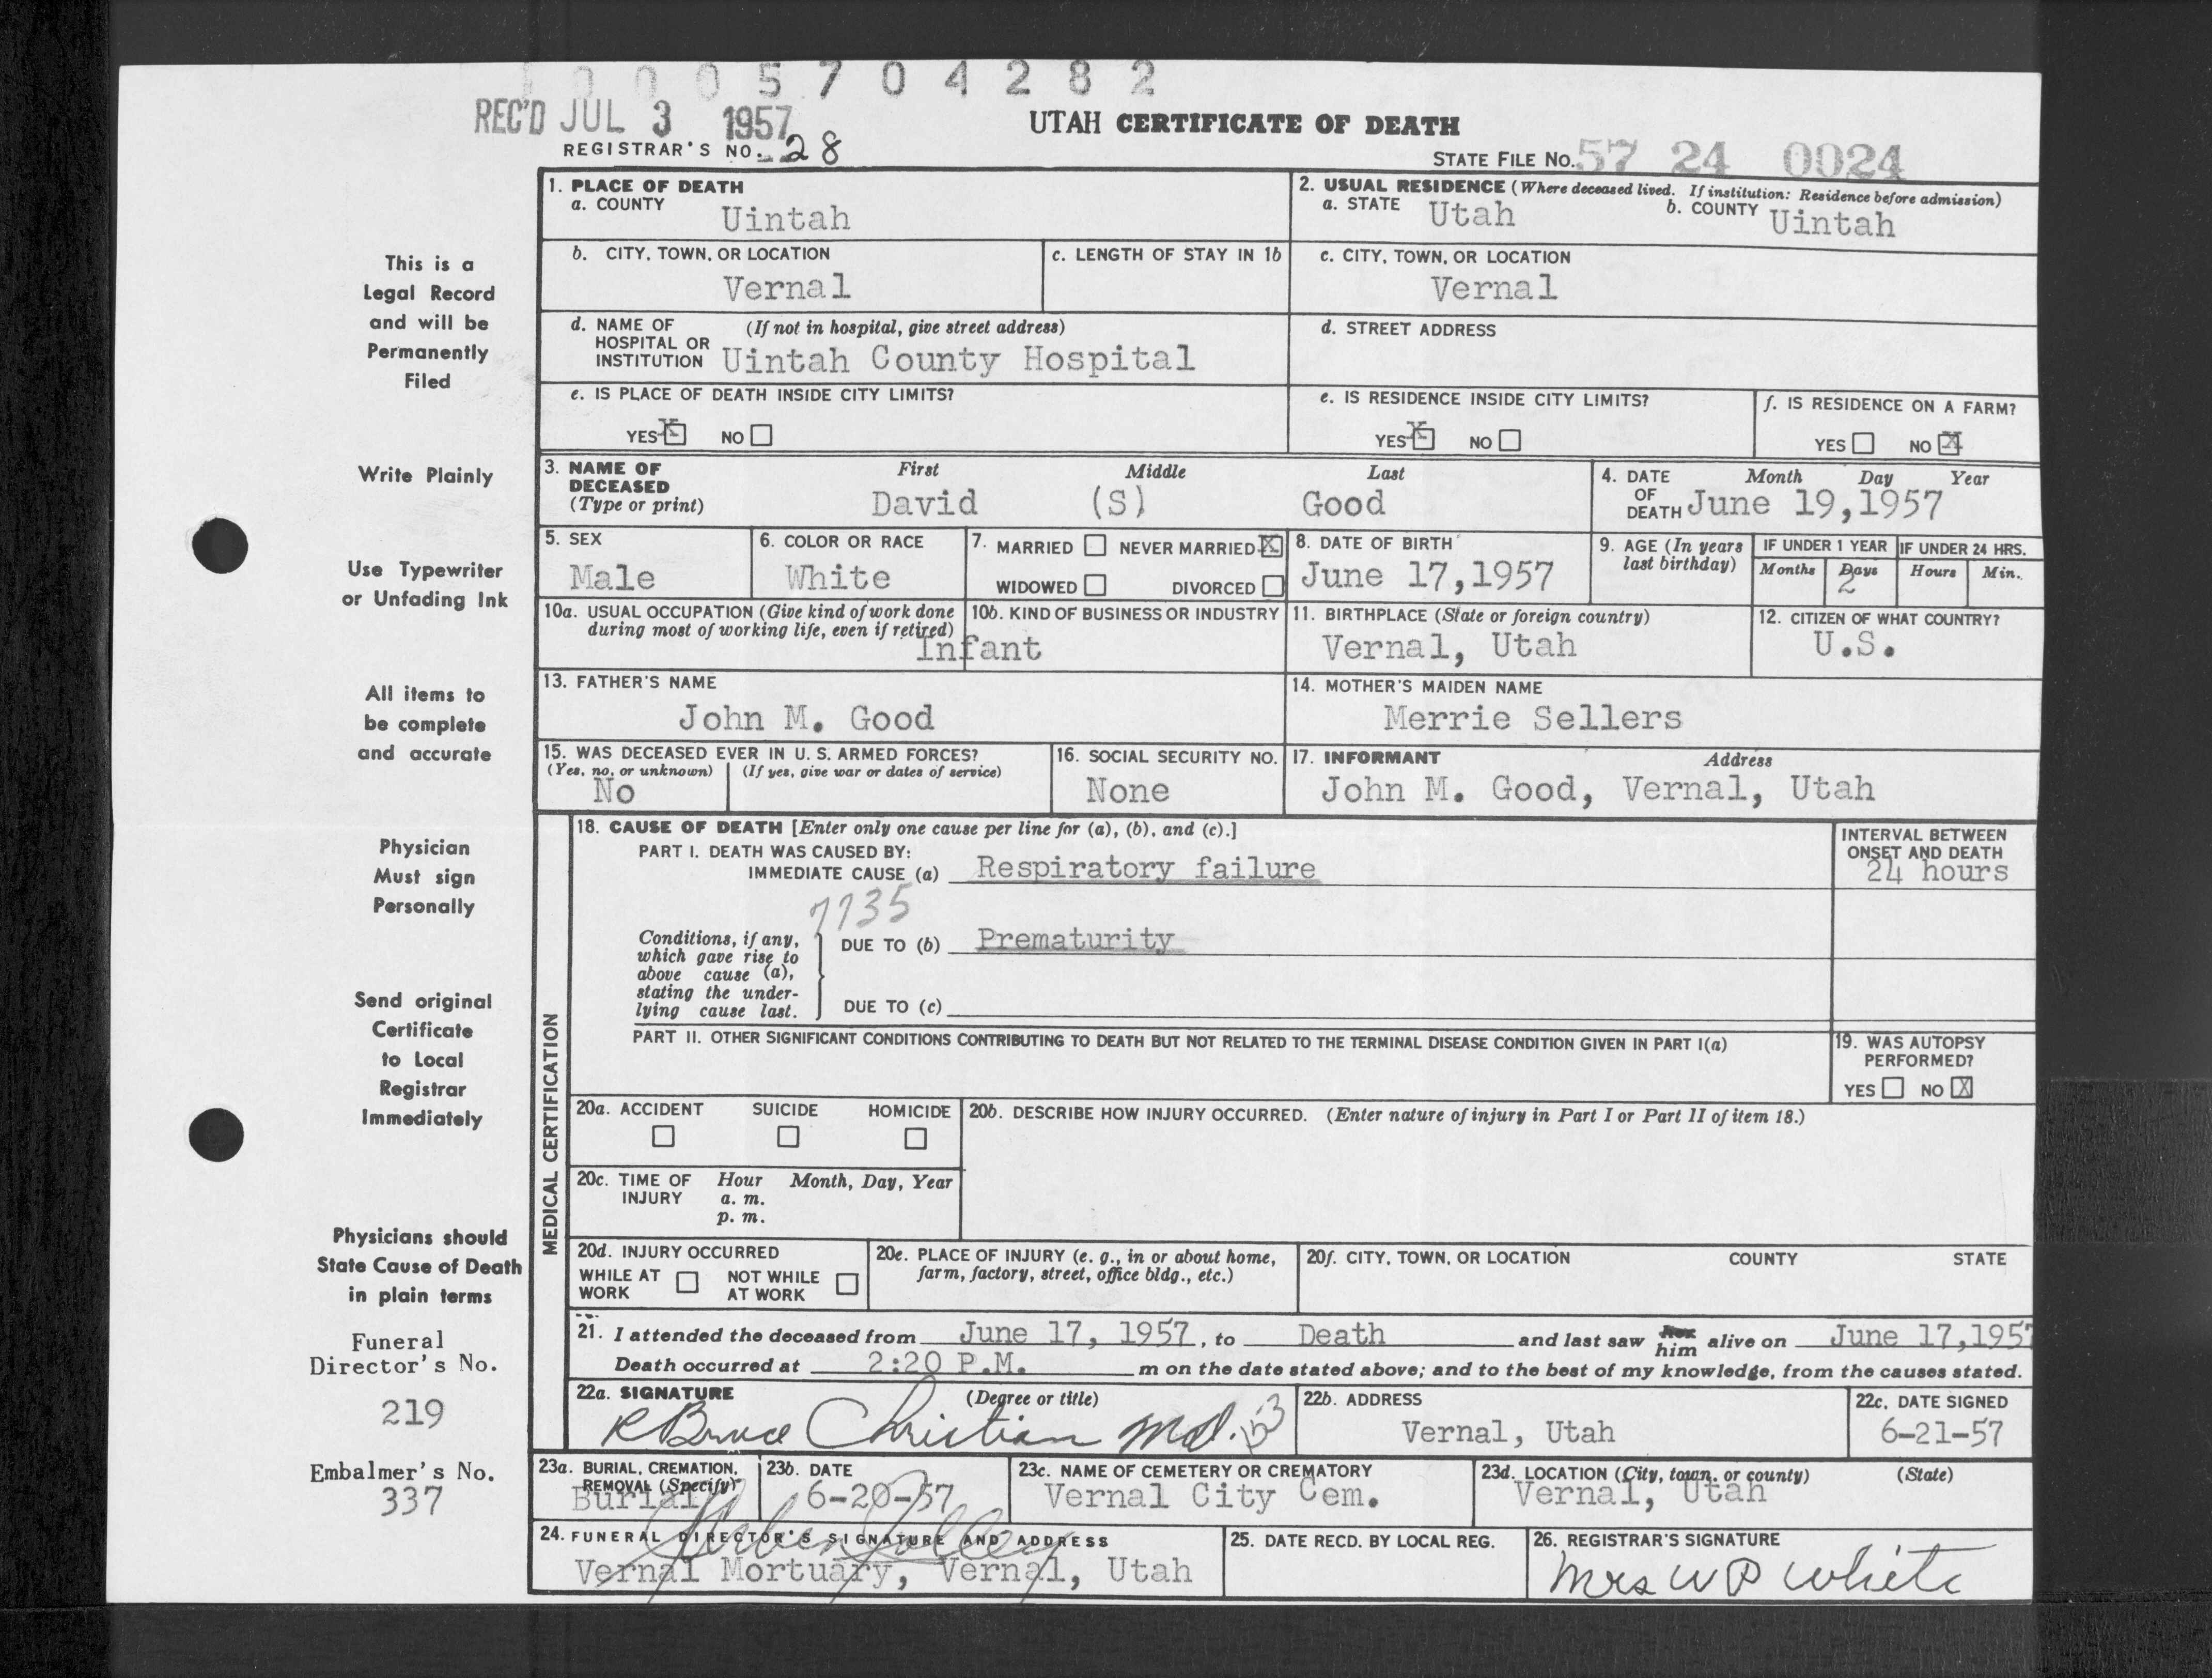 0 0 0 5 7 0 4 2 8 2
REC'D JUL 3 1957
REGISTRAR'S NO. 28
UTAH CERTIFICATE OF DEATH
STATE FILE NO. 57 24 0024
This is a
Legal Record
and will be
Permanently
Filed
Write Plainly
Use Typewriter
or Unfading Ink
All items to
be complete
and accurate
Physician
Must sign
Personally
Send original
Certificate
to Local
Registrar
Immediately
Physicians should
State Cause of Death
in plain terms
Funeral
Director's No.
219
Embalmer's No.
337
1. PLACE OF DEATH
a. COUNTY
Uintah
2. USUAL RESIDENCE (Where deceased lived. If institution: Residence before admission)
a. STATE Utah b. COUNTY Uintah
b. CITY, TOWN, OR LOCATION
Vernal
c. LENGTH OF STAY IN 1b
c. CITY, TOWN, OR LOCATION
Vernal
d. NAME OF (If not in hospital, give street address)
HOSPITAL OR
INSTITUTION Uintah County Hospital
d. STREET ADDRESS
e. IS PLACE OF DEATH INSIDE CITY LIMITS?
YES X NO
e. IS RESIDENCE INSIDE CITY LIMITS?
YES X NO
f. IS RESIDENCE ON A FARM?
YES NO X
3. NAME OF DECEASED
(Type or print)
First Middle Last
David (S) Good
4. DATE OF DEATH
Month Day Year
June 19,1957
5. SEX
Male
6. COLOR OR RACE
White
7. MARRIED NEVER MARRIED X
WIDOWED DIVORCED
8. DATE OF BIRTH
June 17,1957
9. AGE (In years
last birthday)
IF UNDER 1 YEAR IF UNDER 24 HRS.
Months Days Hours Min.
2
10a. USUAL OCCUPATION (Give kind of work done
during most of working life, even if retired)
10b. KIND OF BUSINESS OR INDUSTRY
Infant
11. BIRTHPLACE (State or foreign country)
Vernal, Utah
12. CITIZEN OF WHAT COUNTRY?
U.S.
13. FATHER'S NAME
John M. Good
14. MOTHER'S MAIDEN NAME
Merrie Sellers
15. WAS DECEASED EVER IN U. S. ARMED FORCES?
(Yes, no, or unknown) (If yes, give war or dates of service)
No
16. SOCIAL SECURITY NO.
None
17. INFORMANT Address
John M. Good, Vernal, Utah
MEDICAL CERTIFICATION
18. CAUSE OF DEATH [Enter only one cause per line for (a), (b), and (c).]
PART I. DEATH WAS CAUSED BY:
IMMEDIATE CAUSE (a) Respiratory failure
INTERVAL BETWEEN
ONSET AND DEATH
24 hours
7735
Conditions, if any,
which gave rise to
above cause (a),
stating the under-
lying cause last.
DUE TO (b) Prematurity
DUE TO (c)
PART II. OTHER SIGNIFICANT CONDITIONS CONTRIBUTING TO DEATH BUT NOT RELATED TO THE TERMINAL DISEASE CONDITION GIVEN IN PART I(a)
19. WAS AUTOPSY
PERFORMED?
YES NO X
20a. ACCIDENT SUICIDE HOMICIDE
20b. DESCRIBE HOW INJURY OCCURRED. (Enter nature of injury in Part I or Part II of item 18.)
20c. TIME OF INJURY
Hour Month, Day, Year
a. m.
p. m.
20d. INJURY OCCURRED
WHILE AT WORK NOT WHILE AT WORK
20e. PLACE OF INJURY (e. g., in or about home,
farm, factory, street, office bldg., etc.)
20f. CITY, TOWN, OR LOCATION COUNTY STATE
21. I attended the deceased from June 17, 1957, to Death and last saw him alive on June 17,1957
Death occurred at 2:20 P.M. m on the date stated above; and to the best of my knowledge, from the causes stated.
22a. SIGNATURE (Degree or title)
R Bruce Christian MD.
22b. ADDRESS
Vernal, Utah
22c. DATE SIGNED
6-21-57
23a. BURIAL, CREMATION,
REMOVAL (Specify)
Burial
23b. DATE
6-20-57
23c. NAME OF CEMETERY OR CREMATORY
Vernal City Cem.
23d. LOCATION (City, town, or county) (State)
Vernal, Utah
24. FUNERAL DIRECTOR'S SIGNATURE AND ADDRESS
Vernal Mortuary, Vernal, Utah
25. DATE RECD. BY LOCAL REG.
26. REGISTRAR'S SIGNATURE
Mrs W P White